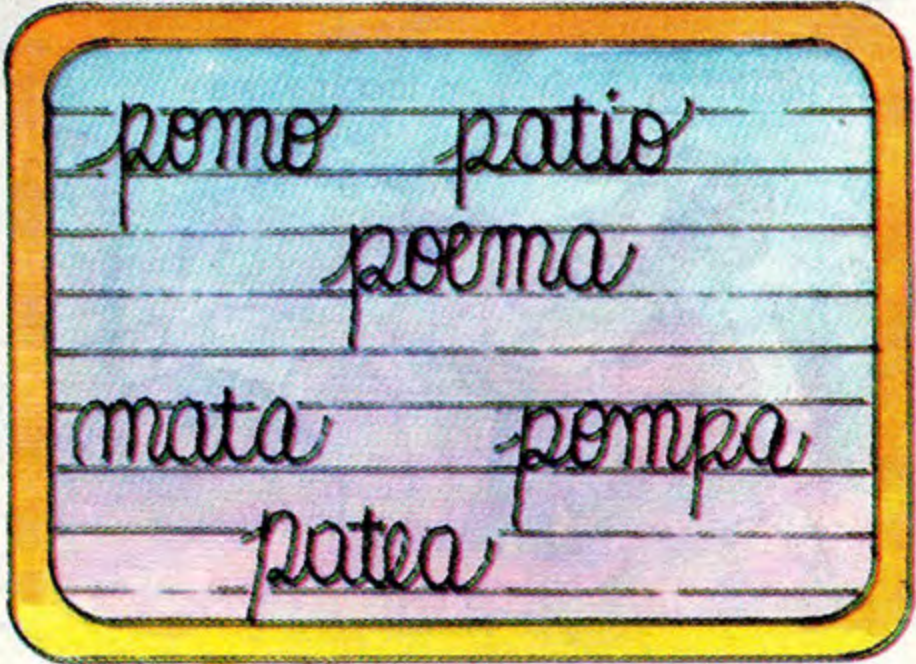 pomo patio
poema
mata pompa
patea